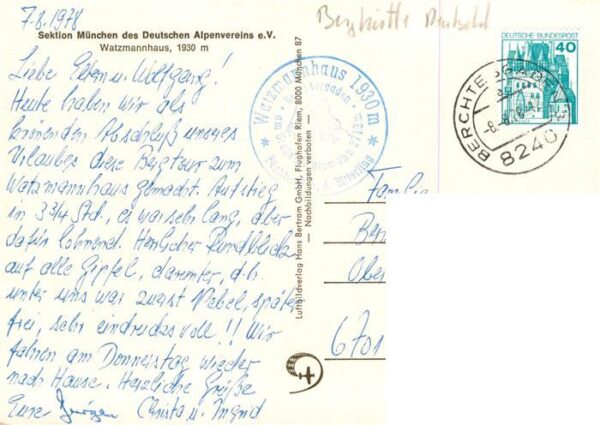 7.8.1978
Sektion München des Deutschen Alpenvereins e.V.
Watzmannhaus, 1930 m
Liebe Eltern u. Wolfgang!
Heute haben wir als
krönenden Abschluß unseres
Urlaubes diese Bergtour zum
Watzmannhaus gemacht. Aufstieg
in 3 3/4 Std., es war sehr lang, aber
dafür lohnend. Herrlicher Rundblick
auf alle Gipfel, darunter, d.h.
unter uns war zuerst Nebel, später
frei, sehr eindrucksvoll!! Wir
fahren am Donnerstag wieder
nach Hause. Herzliche Grüße
Eure Jürgen Christa u. Ingrid
Watzmannhaus 1930 m
Luftbildverlag Hans Bertram GmbH, Flughafen Riem, 8000 München 87
– Nachbildungen verboten –
Berghütte
DEUTSCHE BUNDESPOST
40
BERCHTESGADEN
8240
Familie
Ber
Ober
6701